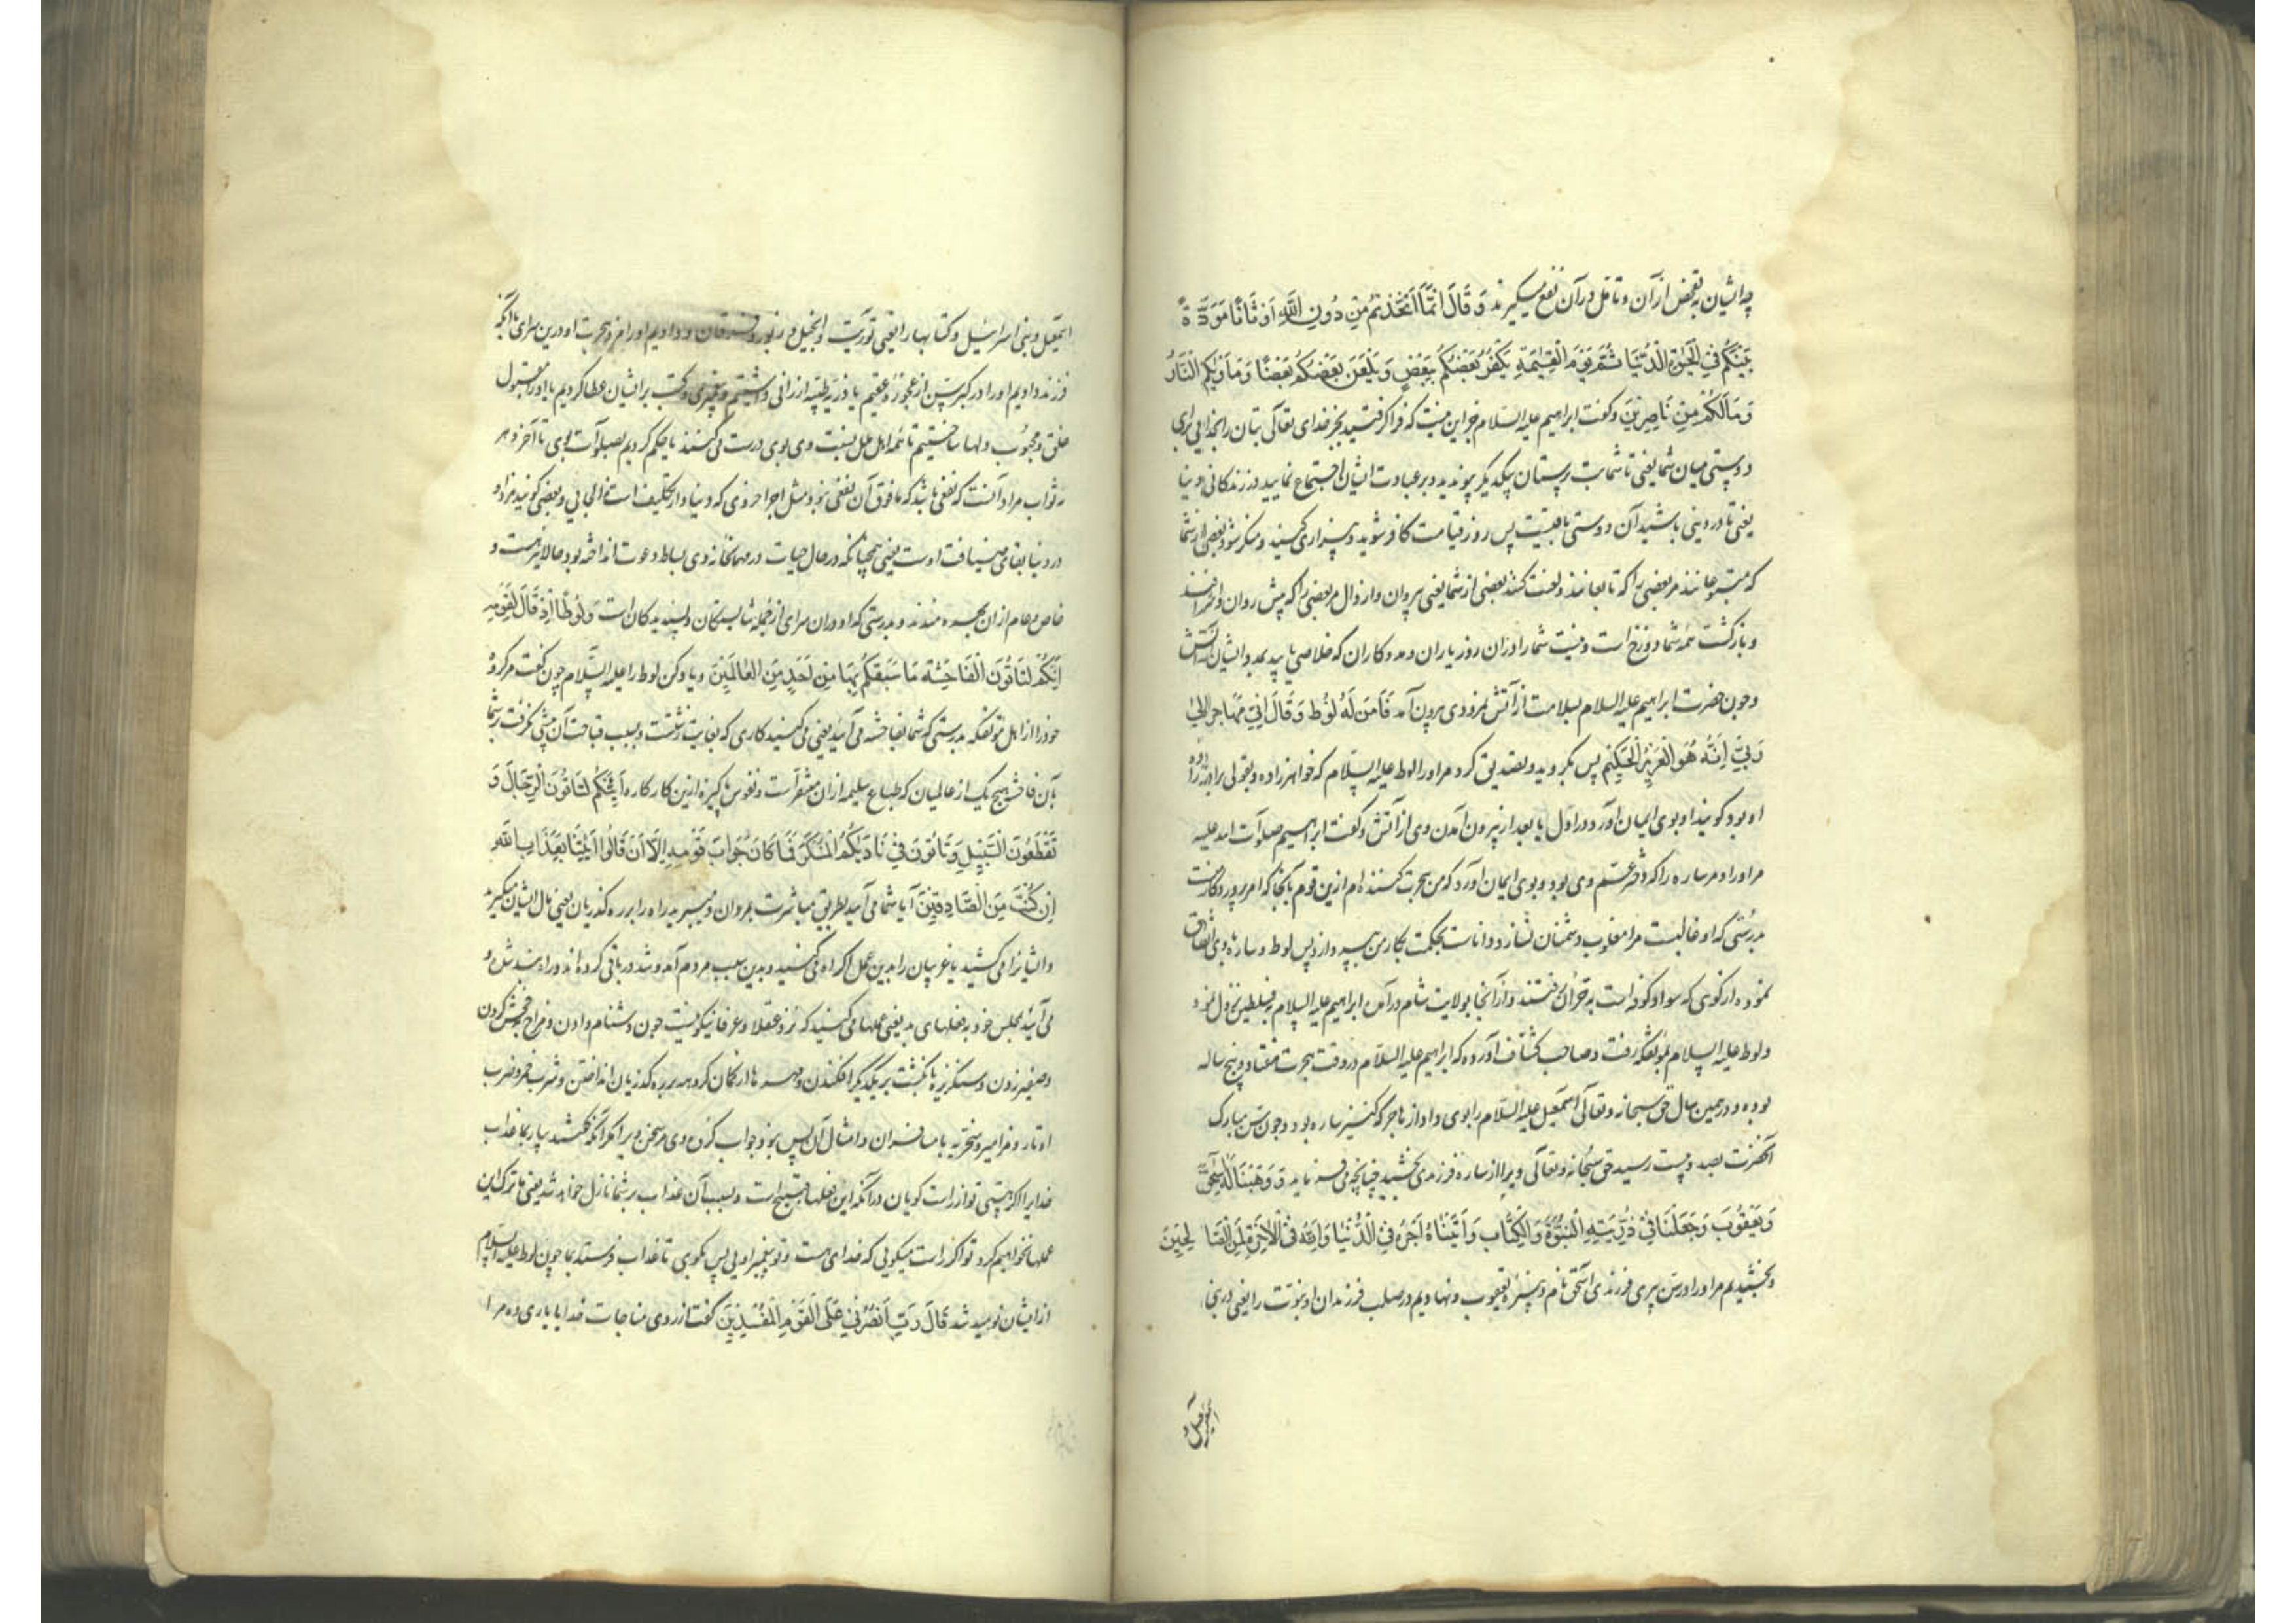 چه ایشان به تفحص از آن و تامل در آن نفع میگیرند وَ قَالَ اِنَّمَا اتَّخَذْتُمْ مِنْ دُونِ اللّٰهِ اَوْثَانًا مَوَدَّةَ
بَيْنِكُمْ فِي الْحَيٰوةِ الدُّنْيَا ثُمَّ يَوْمَ الْقِيٰمَةِ يَكْفُرُ بَعْضُكُمْ بِبَعْضٍ وَ يَلْعَنُ بَعْضُكُمْ بَعْضًا وَ مَاْوٰيكُمُ النَّارُ
وَ مَا لَكُمْ مِنْ نَاصِرِيْنَ و گفت ابراهیم علیه السلام جز این نیست که فرا گرفتید بجز خدای تعالی بتان را بخدایی برای
دوستی میان شما یعنی تا شما بت پرستان بیکدیگر پیوندید و بر عبادت ایشان اجتماع نمایید در زندگانی دنیا
یعنی تا در دنیی باشید آن دوستی باقیست پس روز قیامت کافر شوید و بیزاری کنید و منکر شود بعضی از شما
که متبوعانند مر بعضی را که تابعانند و لعنت کنند بعضی از شما یعنی پیروان و اراذل مر بعضی را که پیش روان و اشرافند
و بازگشت همه شما دوزخ است و نیست شما را در آن روز یاران و مددکاران که خلاصی یابید بمدد ایشان از آتش
و چون حضرت ابراهیم علیه السلام بسلامت از آتش نمرودی بیرون آمد فَاٰمَنَ لَهُ لُوْط وَ قَالَ اِنِّي مُهَاجِرٌ اِلٰی
رَبِّيْ اِنَّهُ هُوَ الْعَزِيْزُ الْحَكِيْمُ پس بگروید و تصدیق کرد مر او را لوط علیه السلام که خواهرزاده و بقولی برادرزاده
او بود گویند او بوی ایمان آورد در اول یا بعد از بیرون آمدن وی از آتش و گفت ابراهیم صلوات الله علیه
مر او را و مر ساره را که دختر عم وی بود و بوی ایمان آورد که من هجرت کننده ام ازین قوم بآنجا که امر پروردگار منست
بدرستی که او غالبست مرا مغلوب دشمنان نسازد و داناست بحکمت بکار من پردازد پس لوط و ساره با وی اتفاق
نموده از کوثی که سواد کوفه است به حران رفتند و از آنجا بولایت شام درآمدند ابراهیم علیه السلام بفلسطین نزول نمود
و لوط علیه السلام بمؤتفکه رفت و صاحب کشاف آورده که ابراهیم علیه السلام در وقت هجرت هفتاد و پنج ساله
بوده و در همین سال حق سبحانه و تعالی اسمعیل علیه السلام را بوی داد از هاجر که کنیز ساره بود و چون سن مبارک
آنحضرت بصد و بیست رسید حق سبحانه و تعالی ویرا از ساره فرزندی بخشید چنانچه میفرماید وَ وَهَبْنَا لَهُ اِسْحٰقَ
وَ يَعْقُوْبَ وَ جَعَلْنَا فِيْ ذُرِّيَّتِهِ النُّبُوَّةَ وَ الْكِتَابَ وَ اٰتَيْنَاهُ اَجْرَهُ فِي الدُّنْيَا وَ اِنَّهُ فِي الْاٰخِرَةِ لَمِنَ الصَّالِحِيْنَ
و بخشیدیم مر او را در سن پیری فرزندی اسحٰق نام و پسرزاده یعقوب و نهادیم در صلب فرزندان او نبوت را یعنی در بنی
اسمعیل و
اسمعیل و بنی اسرائیل و کتابها را یعنی توریت و انجیل و زبور و فرقان و دادیم او را مزد هجرت او درین سرای بآنکه
فرزند دادیم او را در کبر سن از عجوز عقیم یا ذریه طیبه ارزانی داشتیم و پیغمبری و کتب بر ایشان عطا کردیم یا او را مقبول
خلق و محبوب دلها ساختیم تا همه اهل ملل نسبت وی بوی درست میکنند یا حکم کردیم بصلوات بر وی تا آخر دهر
ثواب مراد آنست که نفعی باشد که مافوق آن نفعی نبود مثل اجر اخروی که دنیا دار تکلیف است و بعضی گویند مزد او
در دنیا بقای ضیافت اوست یعنی همچنانکه در حال حیات در مهمانخانه وی بساط دعوت انداخته بود حالا نیز هست و
خاص و عام از ان بهره مندند و بدرستی که او در ان سرای از جمله شایستگان و پسندیدگان است وَ لُوْطًا اِذْ قَالَ لِقَوْمِهِ
اِنَّكُمْ لَتَاْتُوْنَ الْفَاحِشَةَ مَا سَبَقَكُمْ بِهَا مِنْ اَحَدٍ مِنَ الْعَالَمِيْنَ و یاد کن لوط را علیه السلام چون گفت مر گروه
خود را از اهل مؤتفکه بدرستی که شما بفاحشه می آیید یعنی می کنید کاری که بغایت زشتست و بسبب قباحت آن پیشی نگرفت بر شما
بآن فاحشه هیچ یک از عالمیان که طباع سلیمه از ان متنفر است و نفوس پاکیزه ازین کار کاره اَئِنَّكُمْ لَتَاْتُوْنَ الرِّجَالَ وَ
تَقْطَعُوْنَ السَّبِيْلَ وَ تَاْتُوْنَ فِيْ نَادِيْكُمُ الْمُنْكَرَ فَمَا كَانَ جَوَابَ قَوْمِهِ اِلَّا اَنْ قَالُوا ائْتِنَا بِعَذَابِ اللّٰهِ
اِنْ كُنْتَ مِنَ الصَّادِقِيْنَ آیا شما می آیید بطریق مباشرت بمردان و میبرید راه را بر رهگذریان یعنی مال ایشان میگیرید
و ایشانرا می کشید یا غریبان را بدین عمل اکراه می کنید و بدین سبب مردم آمد و شد در باقی کرده اند و راه بند شده و
می آیید بمجلس خود بفعلهای بد یعنی عملها می کنید که نزد عقلا و عرفا نیکو نیست چون دشنام دادن و مزاح فحش کردن
و صفیر زدن و سنگریزه بانگشت بر یکدیگر افکندن و مهره ها از کمان گروهه بر رهگذریان انداختن و شرب خمر و ضرب
اوتار و مزامیر و سخریه با مسافران و امثال آن پس نبود جواب گروه وی مر سخن ویرا مگر آنکه گفتند بیار بما عذاب
خدایرا اگر هستی تو از راست گویان در آنکه این فعلها قبیح است و بسبب آن عذاب بر شما نازل خواهد شد یعنی ما ترک این
عملها نخواهیم کرد تو اگر راست میگویی که خدای هست و تو پیغمبر اویی پس بگوی تا عذاب فرستد بما چون لوط علیه السلام
از ایشان نومید شد قَالَ رَبِّ انْصُرْنِيْ عَلَى الْقَوْمِ الْمُفْسِدِيْنَ گفت از روی مناجات خدایا یاری ده مرا